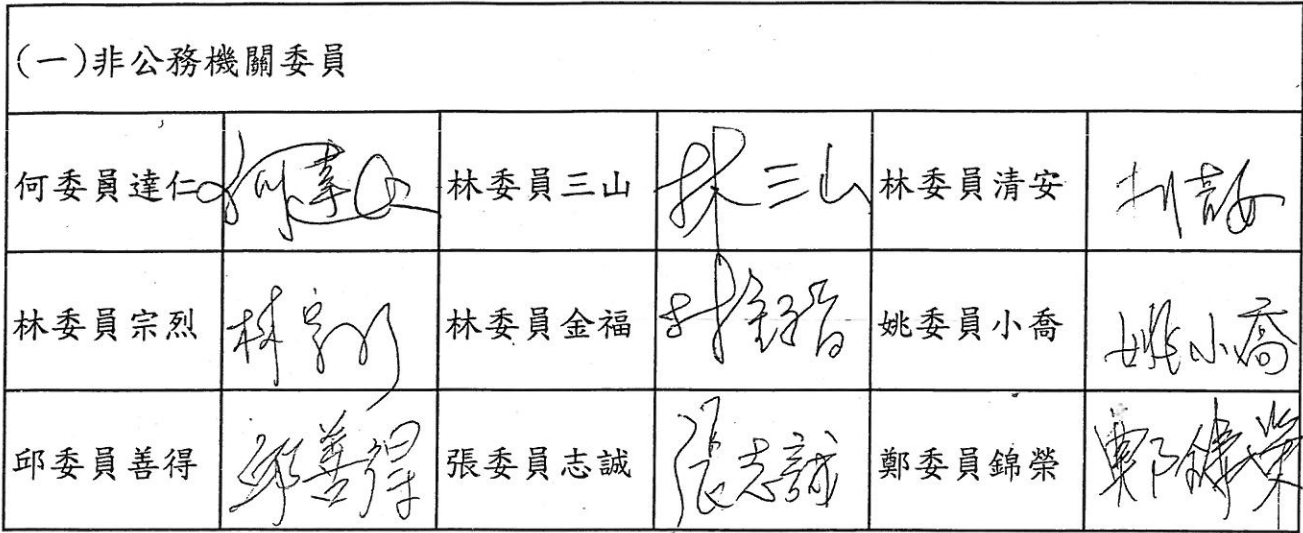 (一)非公務機關委員
何委員達仁 何達仁 林委員三山 林三山 林委員清安 林清安
林委員宗烈 林宗烈 林委員金福 姚委員小喬 姚小喬
邱委員善得 邱善得 張委員志誠 張志誠 鄭委員錦榮 鄭錦榮